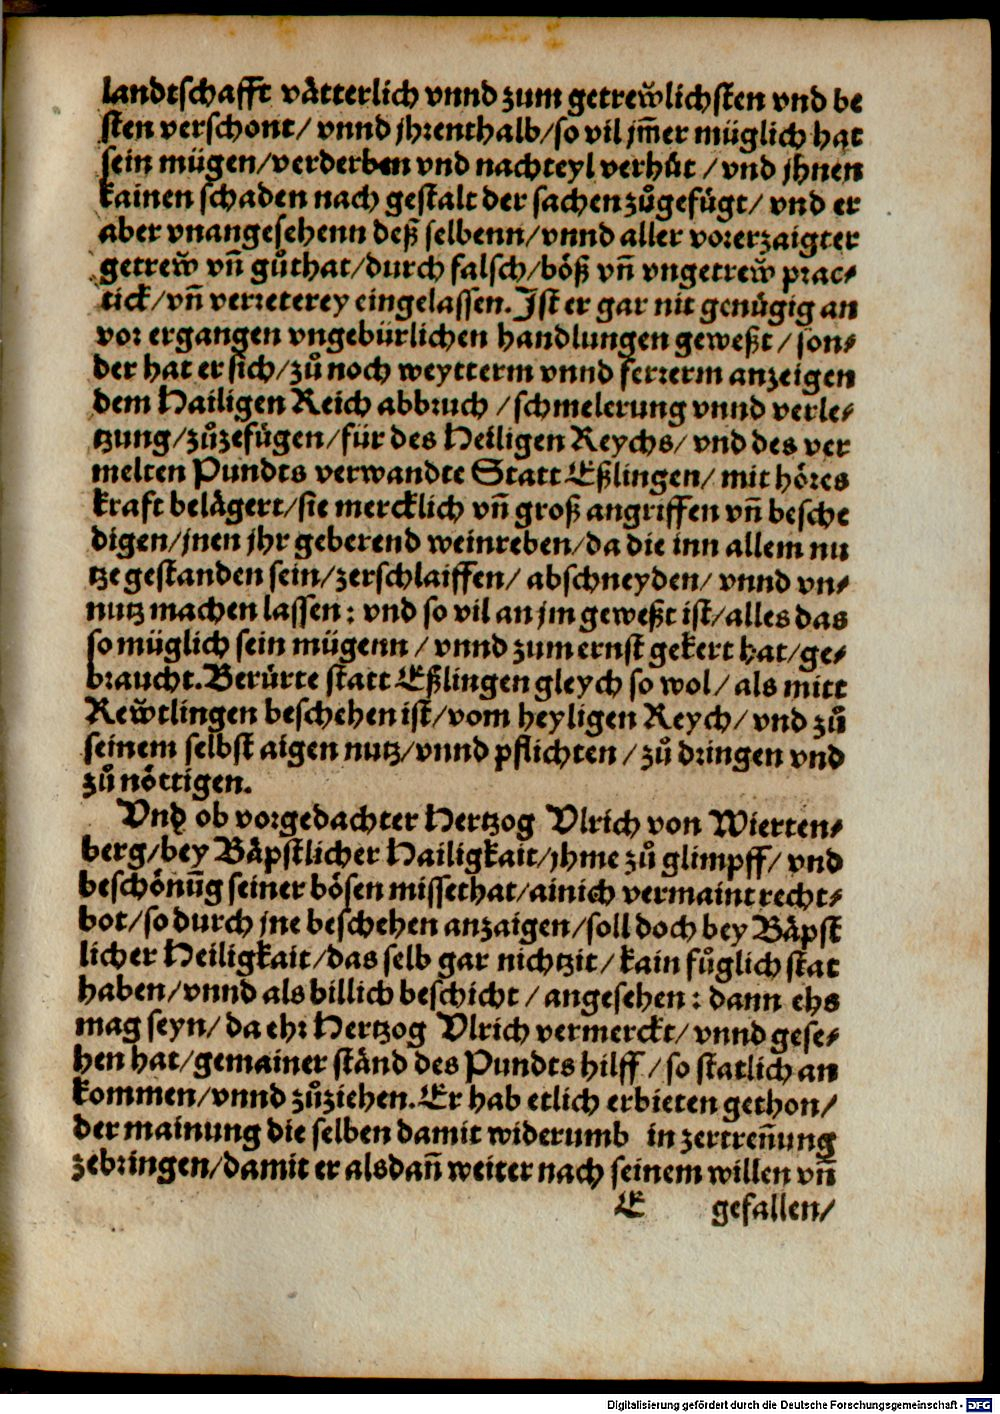 landtschafft vätterlich vnnd zum getrew̌lichsten vnd be
sten verschont/ vnnd jhrenthalb/so vil jm̄er müglich hat
sein mügen/verderben vnd nachteyl verhůt / vnd jhnen
kainen schaden nach gestalt der sachen zůgefügt/ vnd er
aber vnangesehenn deß selbenn/vnnd aller vorerzaigter
getrew̌ vn̄ gůthat/durch falsch/böß vn̄ vngetrew̌ prac⸗
tick/vn̄ verreterey eingelassen. Ist er gar nit genůgig an
vor ergangen vngebürlichen handlungen geweßt/ son⸗
der hat er sich/zů noch weytterm vnnd ferrerm anzeigen
dem Hailigen Reich abbruch /schmelerung vnnd verle⸗
tzung/zůzefügen/für des Heiligen Reychs/ vnd des ver
melten Pundts verwandte Statt Eßlingen/ mit höres
kraft belägert/sie mercklich vn̄ groß angriffen vn̄ besche
digen/jnen jhr geberend weinreben/da die inn allem nu
tze gestanden sein/zerschlaiffen/ abschneyden/ vnnd vn⸗
nutz machen lassen: vnd so vil an jm geweßt ist/alles das
so müglich sein mügenn / vnnd zum ernst gekert hat/ge⸗
braucht. Berürte statt Eßlingen gleych so wol/ als mitt
Rew̌tlingen beschehen ist/vom heyligen Reych/ vnd zů
seinem selbst aigen nutz/vnnd pflichten / zů dringen vnd
zů nöttigen.
Vnd ob vorgedachter Hertzog Vlrich von Wierten⸗
berg/bey Bäpstlicher Hailigkait/jhme zů glimpff/ vnd
beschönūg seiner bösen missethat/ainich vermaint recht⸗
bot/so durch jne beschehen anzaigen/soll doch bey Bäpst
licher Heiligkait/das selb gar nichtzit/ kain fůglich stat
haben/vnnd als billich beschicht / angesehen: dann ehs
mag seyn/ da ehr Hertzog Vlrich vermerckt/ vnnd gese⸗
hen hat/gemainer ständ des Pundts hilff /so statlich an
kommen/vnnd zůziehen. Er hab etlich erbieten gethon/
der mainung die selben damit widerumb in zertren̄ung
zebringen/damit er alsdan̄ weiter nach seinem willen vn̄
E gefallen/
Digitalisierung gefördert durch die Deutsche Forschungsgemeinschaft - DFG